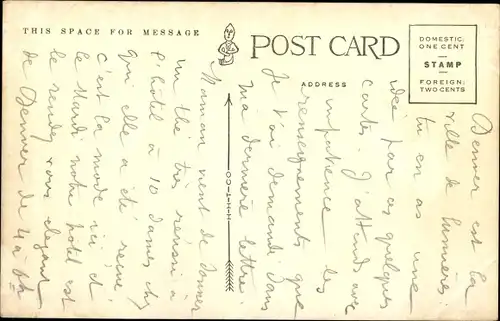 THIS SPACE FOR MESSAGE
POST CARD
ADDRESS
DOMESTIC:
ONE CENT
STAMP
FOREIGN:
TWO CENTS
Denver est la
ville de lumière.
tu en as une
idée par as quelques
cartes. J'attends avec
impatience les
renseignements que
Je t'ai demandé dans
ma dernière lettre.
Maman vient de donner
un thé très réussi à
l'hôtel à 10 dames chez
qui elle a été reçue.
C'est la mode ici, et
le Mardi notre hotel est
le rendez vous élégant
de Denver de 4 à 6h